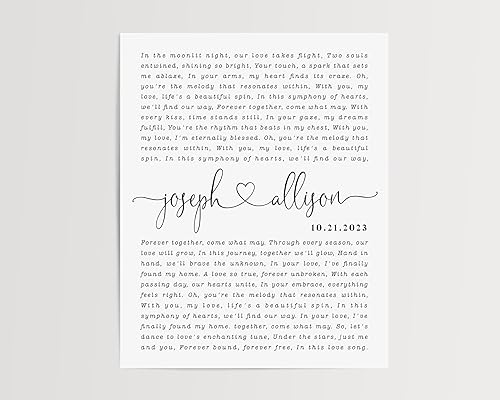 In the moonlit night, our love takes flight, Two souls
entwined, shining so bright, Your touch, a spark that sets
me ablaze, In your arms, my heart finds its craze. Oh,
you're the melody that resonates within, With you, my
love, life's a beautiful spin, In this symphony of hearts,
we'll find our way, Forever together, come what may. With
every kiss, time stands still, In your gaze, my dreams
fulfill, You're the rhythm that beats in my chest, With you,
my love, I'm eternally blessed. Oh, you're the melody that
resonates within, With you, my love, life's a beautiful
spin, In this symphony of hearts, we'll find our way,
joseph allison
10.21.2023
Forever together, come what may, Through every season, our
love will grow, In this journey, together we'll glow, Hand in
hand, we'll brave the unknown, In your love, I've finally
found my home. A love so true, forever unbroken, With each
passing day, our hearts unite, In your embrace, everything
feels right. Oh, you're the melody that resonates within,
With you, my love, life's a beautiful spin, In this
symphony of hearts, we'll find our way. In your love, I've
finally found my home. together, come what may. So, let's
dance to love's enchanting tune, Under the stars, just me
and you, Forever bound, forever free, In this love song.